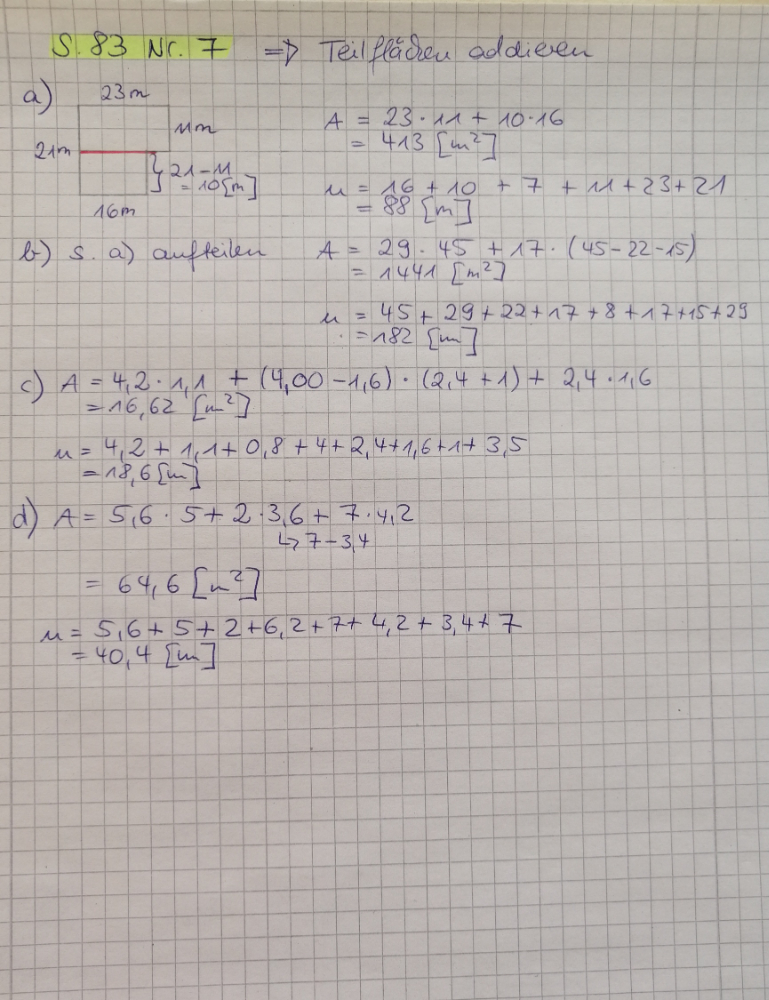 S. 83 Nr. 7 => Teilflächen addieren
a) 23m
11m
21m
21-11
= 10[m]
16m
A = 23·11 + 10·16
= 413 [m²]
u = 16 + 10 + 7 + 11 + 23 + 21
= 88 [m]
b) s. a) aufteilen
A = 29·45 + 17·(45-22-15)
= 1441 [m²]
u = 45 + 29 + 22 + 17 + 8 + 17 + 15 + 29
= 182 [m]
c) A = 4,2·1,1 + (4,00-1,6)·(2,4+1) + 2,4·1,6
= 16,62 [m²]
u = 4,2 + 1,1 + 0,8 + 4 + 2,4 + 1,6 + 1 + 3,5
= 18,6 [m]
d) A = 5,6·5 + 2·3,6 + 7·4,2
↳ 7-3,4
= 64,6 [m²]
u = 5,6 + 5 + 2 + 6,2 + 7 + 4,2 + 3,4 + 7
= 40,4 [m]